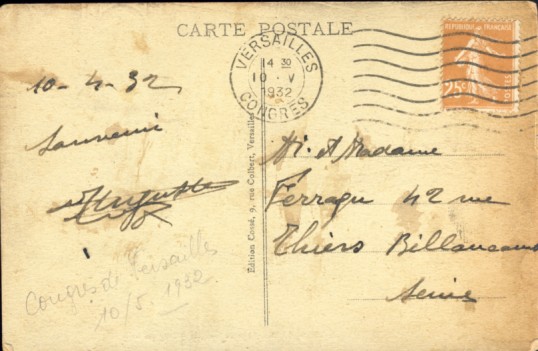 CARTE POSTALE
VERSAILLES
14 30
10 · V
1932
CONGRÈS
REPUBLIQUE FRANÇAISE
25c
POSTES
10-4-32
Souvenir
Huguette
M. et Madame
Ferragu 42 rue
Thiers Billancourt
Seine
Edition Coué, 9, rue Colbert, Versailles
Congrès de Versailles
10/5. 1932